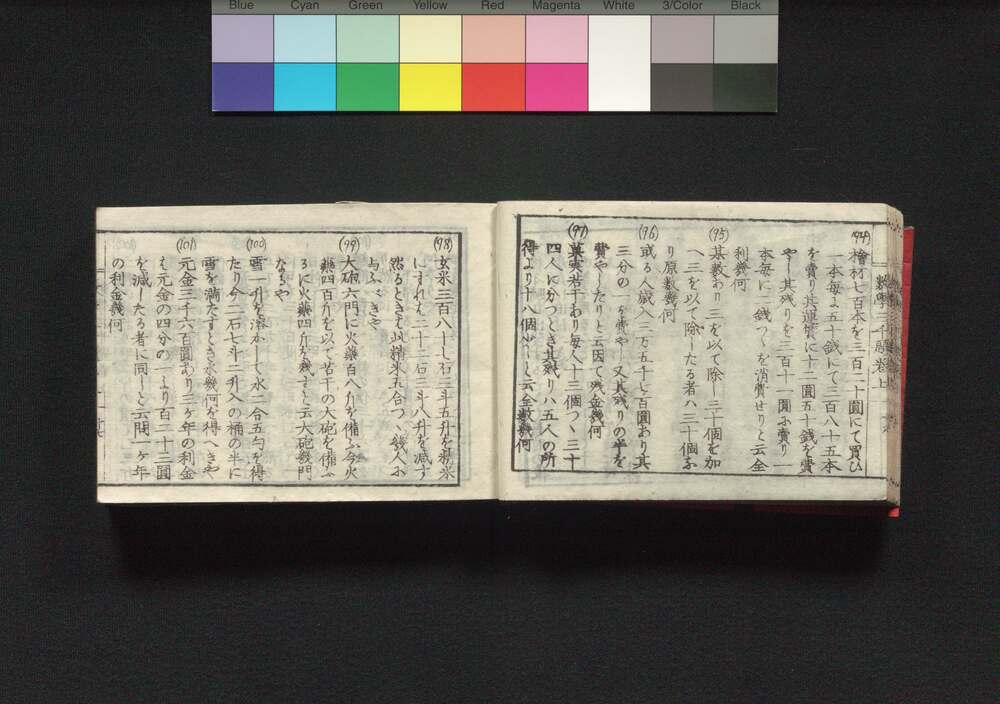 Blue Cyan Green Yellow Red Magenta White 3/Color Black
(94)
檜材七百本を三百二十圓にて買ひ
一本毎に五十銭にて三百八十五本
を賣り其運賃に十二圓五十銭を費
やし其残りを三百十一圓に賣り一
本毎に二銭つゝを消費せりと云全
利幾何
(95)
某数あり三を以て除し三十個を加
へ三を以て除したる者ハ三十個な
り原数幾何
(96)
或る人歳入三万五千七百圓あり其
三分の一を費やし又其残りの半を
費やしたりと云因て残金幾何
(97)
菓実若干あり毎人十三個つゝ三十
四人に分つとき其残りハ五人の所
得より十八個少しと云全数幾何
(98)
玄米三百八十七石三斗五升を精米
にすれハ二十二石三斗八升を減す
然るときは此精米五合つゝ幾人に
与ふべきや
(99)
大砲六門に火薬百八斤を備ふ今火
薬四百斤を以て若干の大砲を備ふ
るに火薬四斤を残すと云大砲幾門
なるや
(100)
雪一升を溶かして水二合五勺を得
たり今二石七斗二升入の桶の半に
雪を満たすとき水幾何を得へきや
(101)
元金三千六百圓あり三ヶ年の利金
は元金の四分の一より百二十三圓
を減したる者に同しと云間一ヶ年
の利金幾何